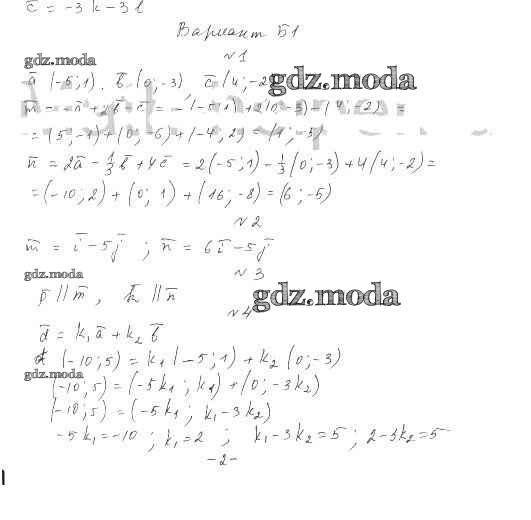 c̅ = -3k - 3l
Вариант Б1
№1
gdz.moda
a̅ (-5; 1), b̅ (0; -3) c̅ (4; -2)
gdz.moda
m̅ = -a̅ + 2b̅ - c̅ = -(-5; 1) + 2(0; -3) - (4; -2) =
= (5; -1) + (0; -6) + (-4; 2) = (1; -5)
n̅ = 2a̅ - 1/3 b̅ + 4c̅ = 2(-5; 1) - 1/3 (0; -3) + 4(4; -2) =
= (-10; 2) + (0; 1) + (16; -8) = (6; -5)
№2
m̅ = i̅ - 5j̅ ; n̅ = 6i̅ - 5j̅
gdz.moda
№3
p̅ || m̅ , k̅ || n̅
gdz.moda
№4
d̅ = k₁a̅ + k₂b̅
d (-10; 5) = k₁ (-5; 1) + k₂ (0; -3)
gdz.moda
(-10; 5) = (-5k₁; k₁) + (0; -3k₂)
(-10; 5) = (-5k₁; k₁ - 3k₂)
-5k₁ = -10 ; k₁ = 2 ; k₁ - 3k₂ = 5 ; 2 - 3k₂ = 5
-2-